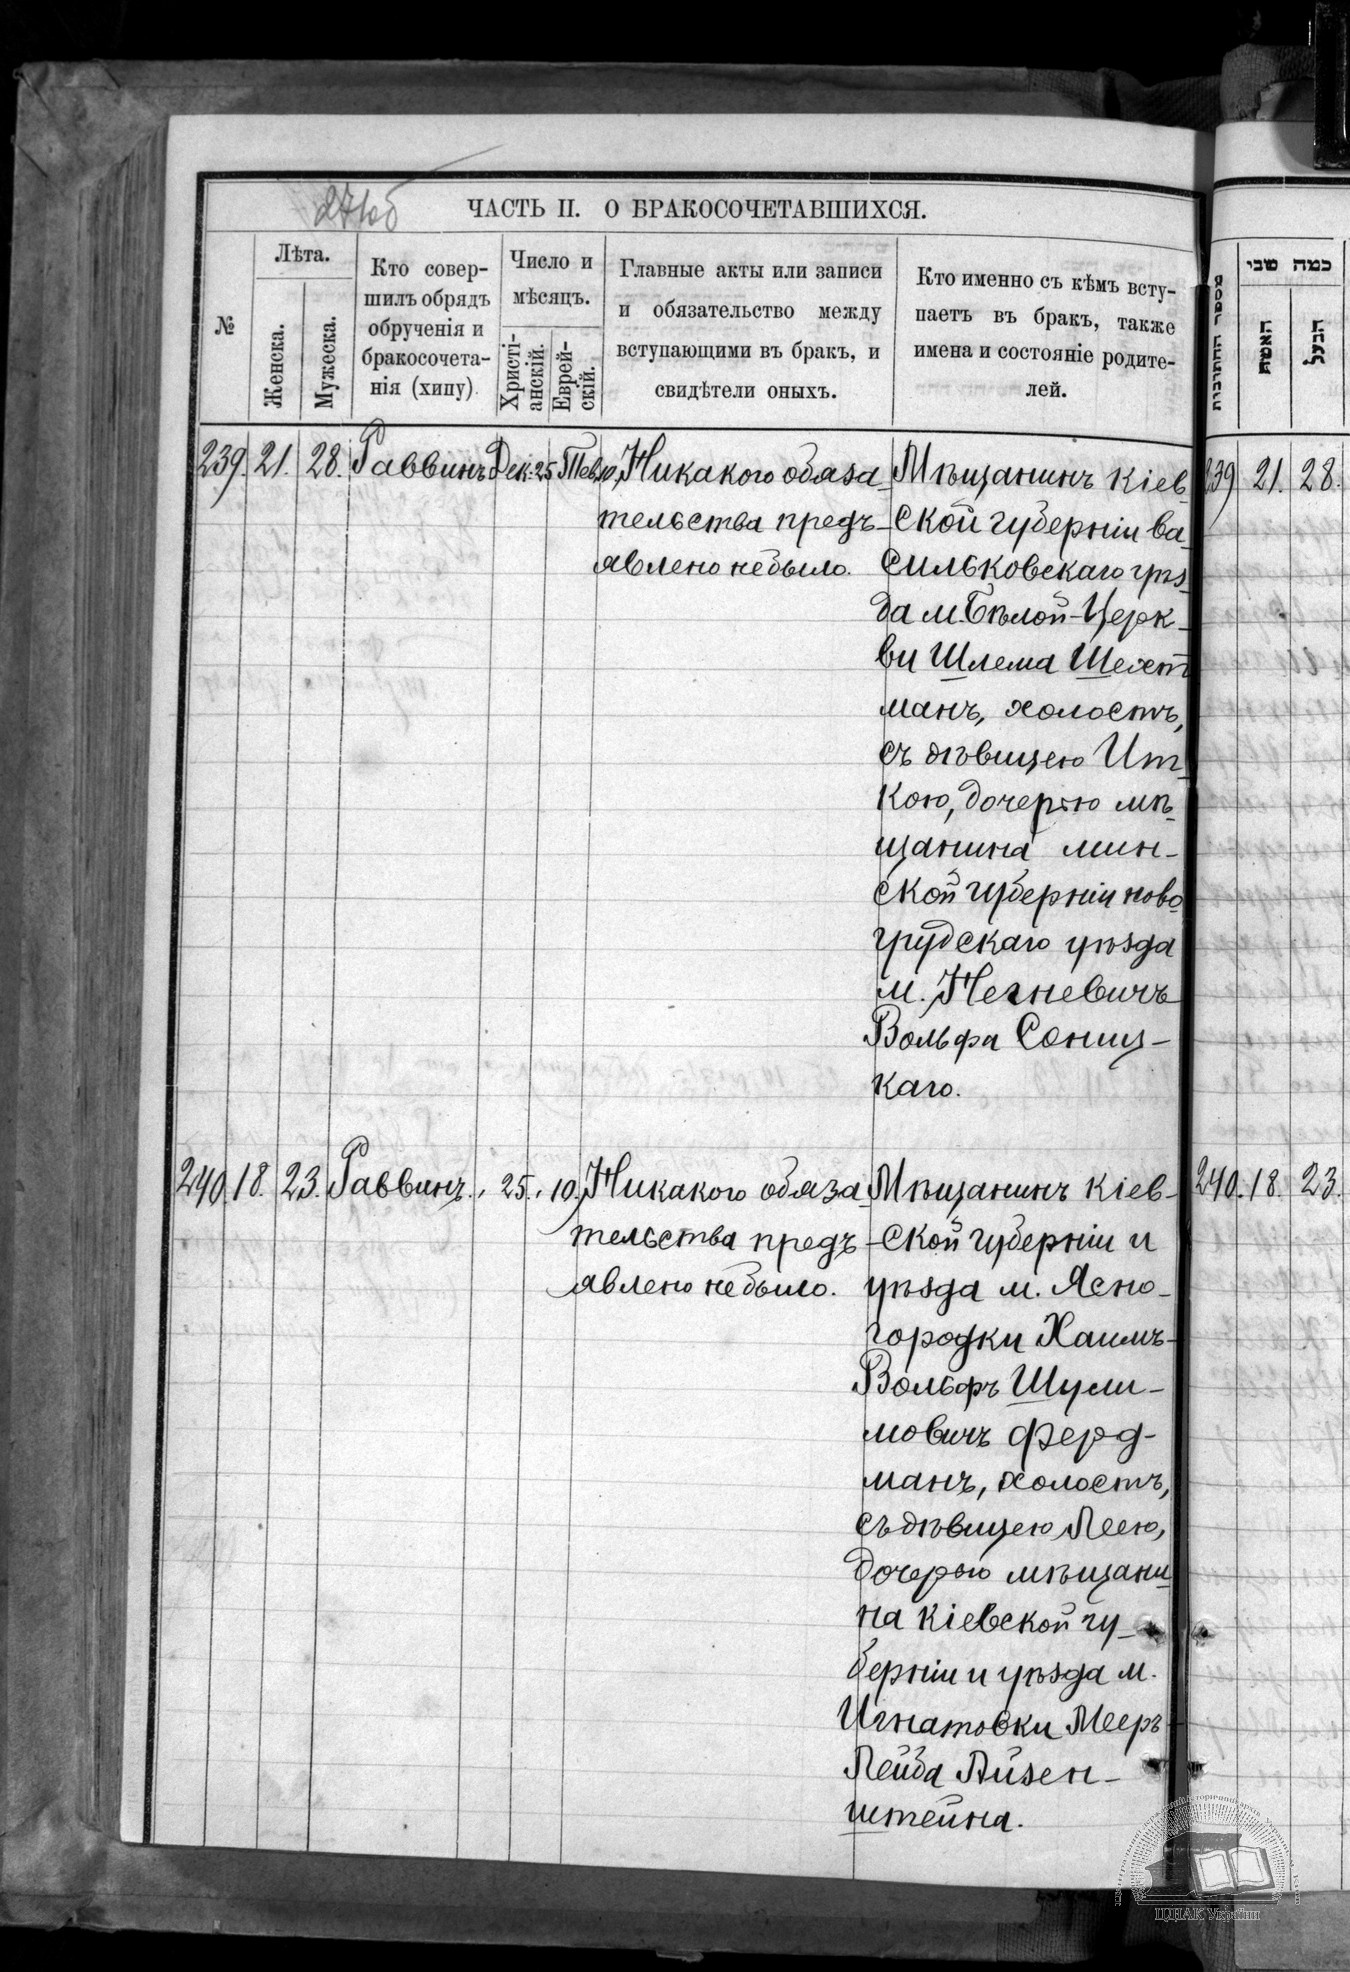 271об
ЧАСТЬ II. О БРАКОСОЧЕТАВШИХСЯ.
№
Лѣта.
Женска.
Мужеска.
Кто совер-
шилъ обрядъ
обрученія и
бракосочета-
нія (хипу)
Число и
мѣсяцъ.
Христі-
анскій.
Еврей-
скій.
Главные акты или записи
и обязательство между
вступающими въ бракъ, и
свидѣтели оныхъ.
Кто именно съ кѣмъ всту-
паетъ въ бракъ, также
имена и состояніе родите-
лей.
מספר החתונות
כמה שני
האשה
הבעל
239. 21. 28. Раввинъ Дек. 25 Тев. 10,
Никакого обяза-
тельства предъ-
явлено не было.
Мѣщанинъ Кіев-
ской губерніи Ва-
сильковскаго уѣз-
да м. Бѣлой-Церк-
ви Шлема Шехт
манъ, холостъ,
съ дѣвицею Ит-
кою, дочерью мѣ-
щанина мин-
ской губерніи ново
грудскаго уѣзда
м. Негневичъ
Вольфа Сониц-
каго.
239 21. 28.
240. 18. 23. Раввинъ. " 25. " 10.
Никакого обяза-
тельства предъ-
явлено не было.
Мѣщанинъ Кіев-
ской губерніи и
уѣзда м. Ясно-
городки Хаимъ-
Вольфъ Шули-
мовичъ Ферд-
манъ, холостъ,
съ дѣвицею Леею,
дочерью мѣщани-
на Кіевской гу-
берніи и уѣзда м.
Игнатовки Мееръ-
Лейба Айзен-
штейна.
240. 18. 23.
ЦДІАК України